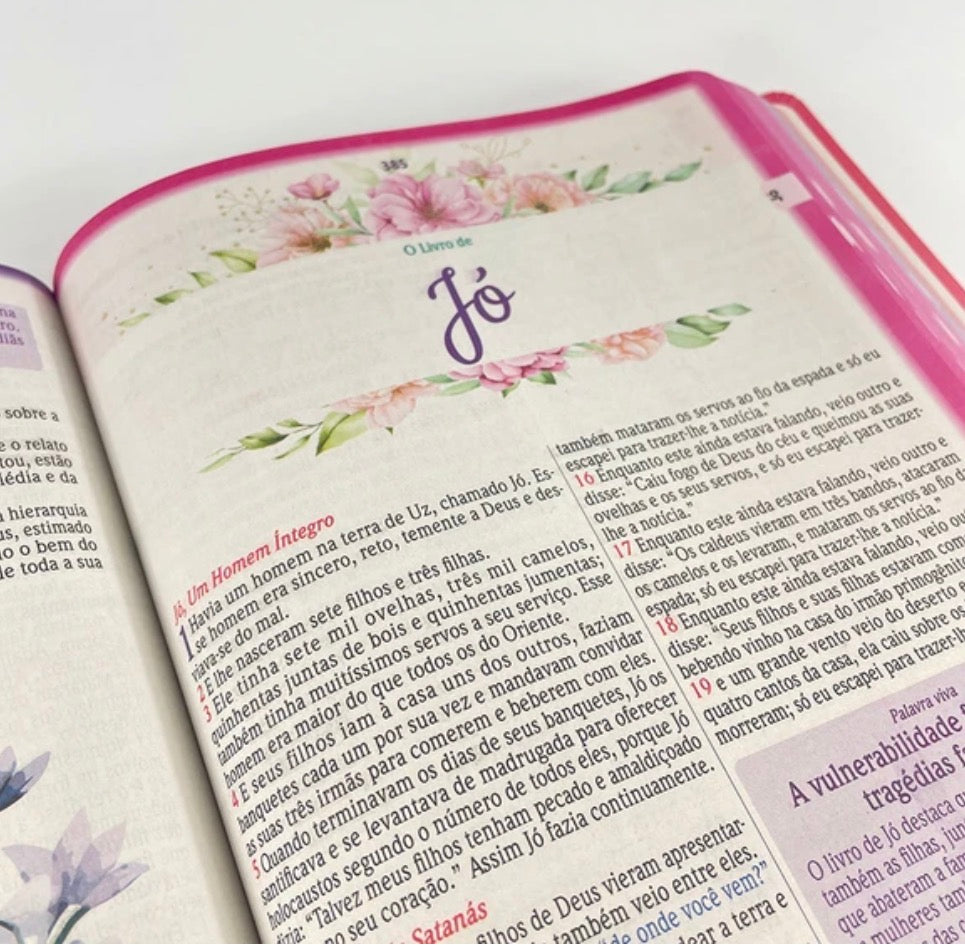 sobre a
e o relato
estão
e da
hierarquia
estimado
o bem do
toda a sua
385
O Livro de
Jó
Jó, Um Homem Íntegro
1 Havia um homem na terra de Uz, chamado Jó. Es-
se homem era sincero, reto, temente a Deus e des-
viava-se do mal.
2 E lhe nasceram sete filhos e três filhas.
3 Ele tinha sete mil ovelhas, três mil camelos,
quinhentas juntas de bois e quinhentas jumentas;
também tinha muitíssimos servos a seu serviço. Esse
homem era maior do que todos os do Oriente.
4 E seus filhos iam à casa uns dos outros, faziam
banquetes cada um por sua vez e mandavam convidar
as suas três irmãs para comerem e beberem com eles.
5 Quando terminavam os dias de seus banquetes, Jó os
santificava e se levantava de madrugada para oferecer
holocaustos segundo o número de todos eles, porque Jó
dizia: "Talvez meus filhos tenham pecado e amaldiçoado
no seu coração." Assim Jó fazia continuamente.
Satanás
filhos de Deus vieram apresentar-
também veio entre eles.
"de onde você vem?"
a terra e
também mataram os servos ao fio da espada e só eu
escapei para trazer-lhe a notícia."
16 Enquanto este ainda estava falando, veio outro e
disse: "Caiu fogo de Deus do céu e queimou as suas
ovelhas e os seus servos, e só eu escapei para trazer-
lhe a notícia."
17 Enquanto este ainda estava falando, veio outro e
disse: "Os caldeus vieram em três bandos, atacaram
os camelos e os levaram, e mataram os servos ao fio da
espada; só eu escapei para trazer-lhe a notícia."
18 Enquanto este ainda estava falando, veio
disse: "Seus filhos e suas filhas estavam
bebendo vinho na casa do irmão primogênito
19 e um grande vento veio do deserto e
quatro cantos da casa, ela caiu sobre os
morreram; só eu escapei para trazer-lhe
Palavra viva
A vulnerabilidade
tragédias
O livro de Jó destaca
também as filhas,
que abateram a
mulheres